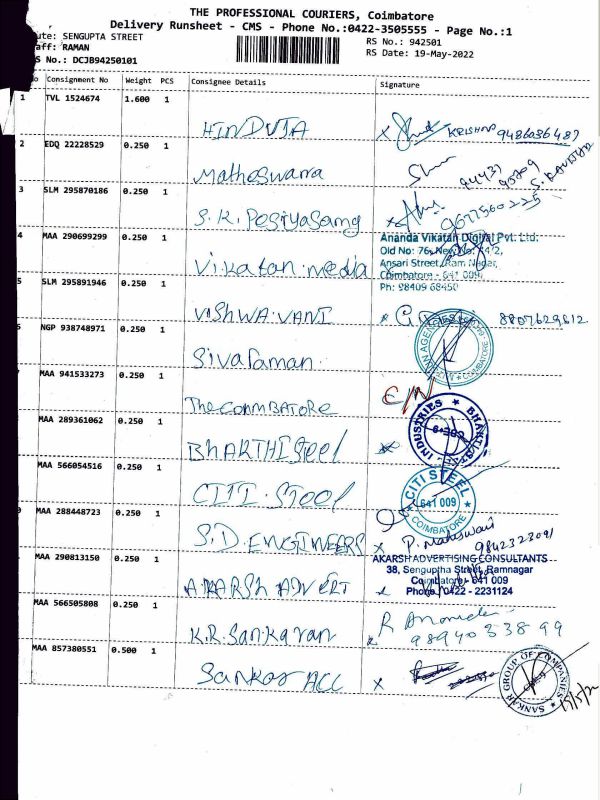 THE PROFESSIONAL COURIERS, Coimbatore
Delivery Runsheet - CMS - Phone No.:0422-3505555 - Page No.:1
ute: SENGUPTA STREET
aff: RAMAN
S No.: DCJB94250101
RS No.: 942501
RS Date: 19-May-2022
No Consignment No Weight PCS Consignee Details Signature
1 TVL 1524674 1.600 1
HINDUJA KRISHNA 9486036487
2 EDQ 22228529 0.250 1
Matheswara 94437
3 SLM 295870186 0.250 1
S.K. Pesiyasamy 9677560225
4 MAA 290699299 0.250 1
Vikatan media
Ananda Vikatan Digital Pvt. Ltd.
Old No: 76, New No: 44/2,
Ansari Street, Ram Nagar,
Coimbatore - 641 009.
Ph: 98409 68450
5 SLM 295891946 0.250 1
VISHWA VANI 8807629612
6 NGP 938748971 0.250 1
Sivaraman
COIMBATORE
MAA 941533273 0.250 1
The COIMBATORE
MAA 289361062 0.250 1
BHARTHI Steel
INDUSTRIES ★ BHARTHI
MAA 566054516 0.250 1
CITI Steel
CITI STEEL
641 009
COIMBATORE
MAA 288448723 0.250 1
S.D. ENGINEERS P. Maheswari
MAA 290813150 0.250 1
AKARSH ADVERT
AKARSH ADVERTISING CONSULTANTS
38, Senguptha Street, Ramnagar
Coimbatore - 641 009
Phone: 0422 - 2231124
MAA 566505808 0.250 1
K.R. Sankaran
98940 338 99
MAA 857380551 0.500 1
Sankar ACC
SANKAR GROUP OF COMPANIES